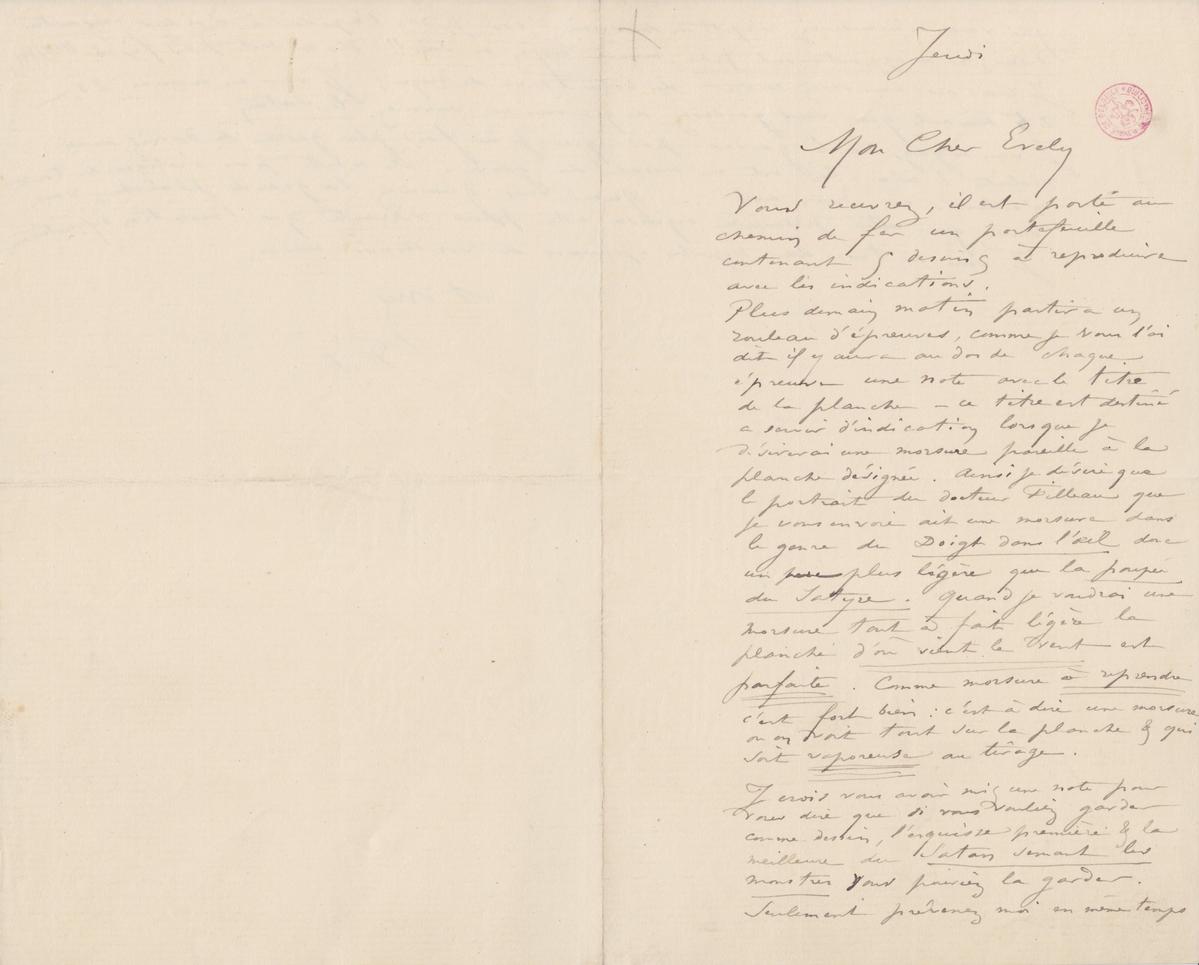 Jeudi
Mon Cher Evely
Vous recevrez, il est porté au
chemin de fer un portefeuille
contenant 5 dessins à reproduire
avec les indications.
Plus demain matin partira un
rouleau d'épreuves, comme je vous l'ai
dit il y aura au dos de chaque
épreuve une note avec le titre
de la planche – ce titre est destiné
a servir d'indication lorsque je
désirerai une morsure pareille à la
planche désignée. Ainsi je désire que
le portrait du docteur Filleau que
je vous envoie ait une morsure dans
le genre du Doigt dans l'œil donc
un peu plus légère que la poupée
du Satyre. Quand je voudrai une
morsure tout à fait légère la
planche d'où vient le Vent est
parfaite. Comme morsure à reprendre
c'est fort bien : c'est à dire une morsure
ou on voit tout sur la planche & qui
soit vaporeuse au tirage.
Je crois vous avoir mis une note pour
vous dire que si vous vouliez garder
comme dessin, l'esquisse première & la
meilleure du Satan semant les
monstres vous pouviez la garder.
Seulement prévenez moi en même temps